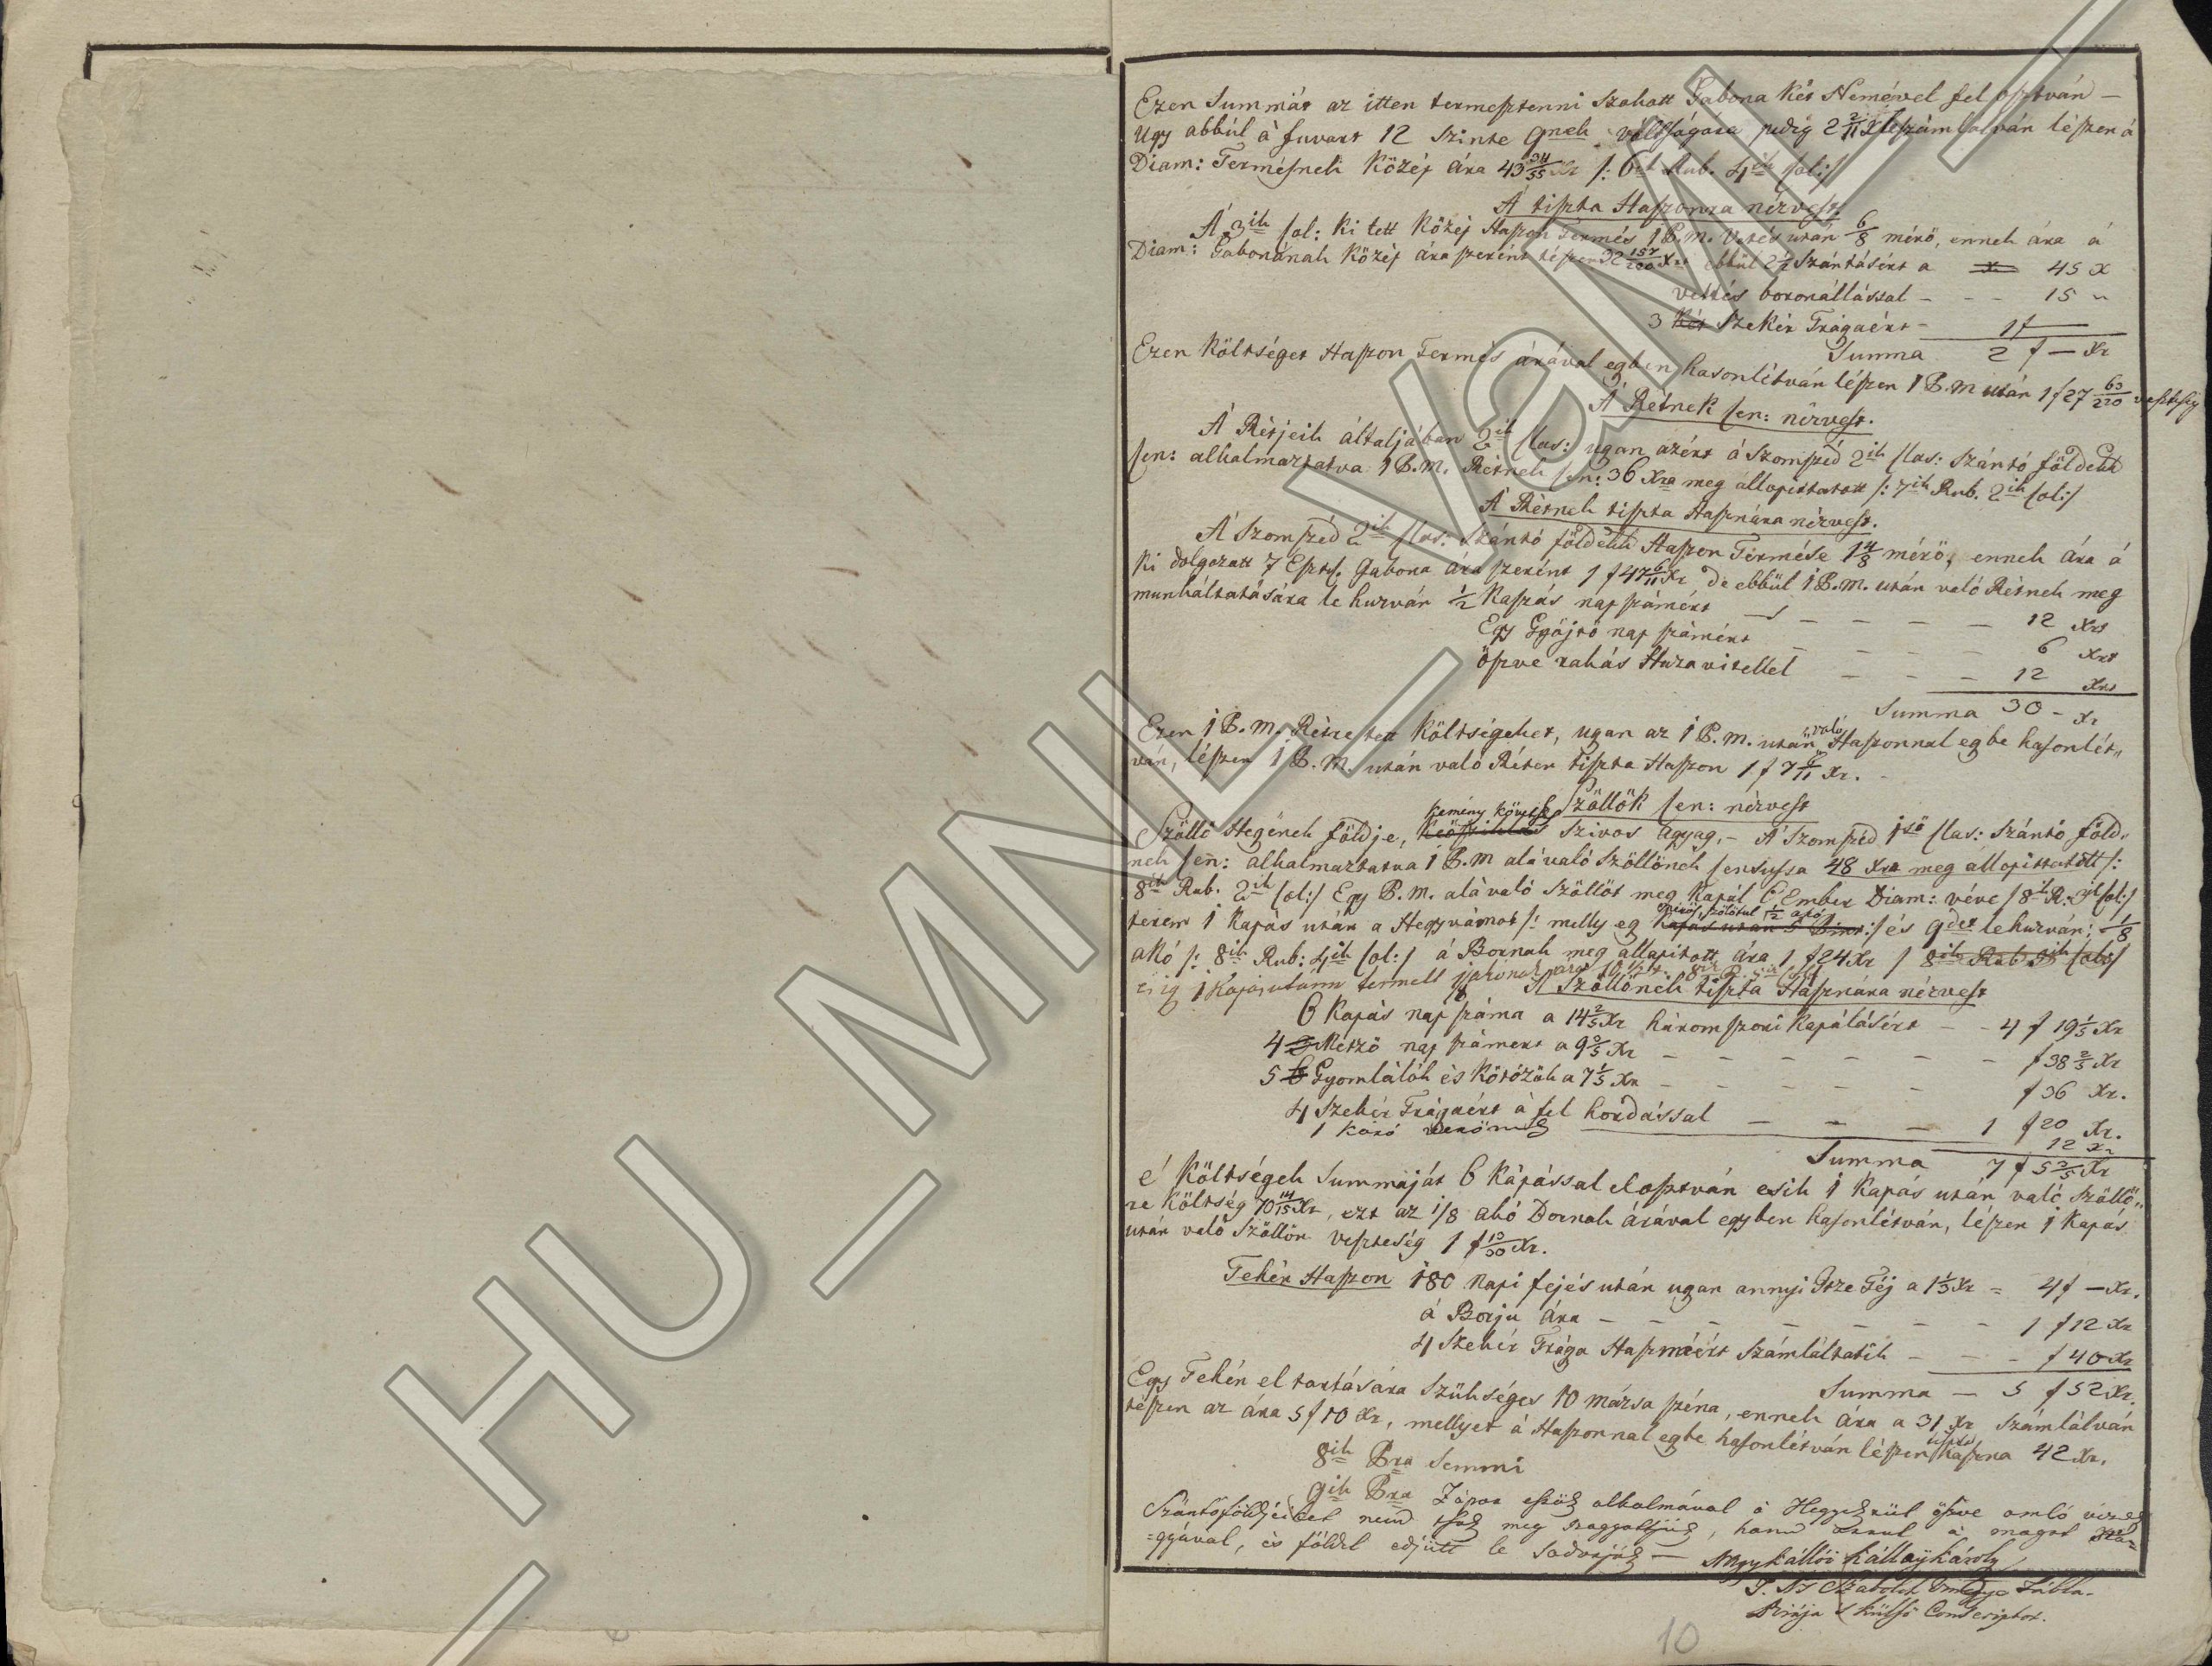 Ezen Summát az itten termesztenni Szokott Gabona Két Nemével fel osztván —
Ugy abbúl á fuvart 12 Szinte 9nek váltságára pedig 2 2/11 X leszámlálván lészen á
Diam: Termésnek Közép ára 43 34/55 Xr /: 6ik Rub. 4ik Col:/
Á tiszta Haszonra nézvest
Á 3ik Col: Ki tett Közép Haszon Termés 1 P.M. Vetés után 6/8 mérő, ennek ára á
Diam: Gabonának Közép ára szerént tészen 32 157/220 Xrt ebbül 2 1/2 Szántásért a 45 X
vettés boronállással - - - 15 "
3 Két Szekér Trágyáért - 1 f —
Summa 2 f — Xr
Ezen Költséget Haszon Termés árával egyben hasonlítván lészen 1 P.M után 1 f 27 63/220 veszteség
Á Rétnek Cen: nézvest.
Á Rétjeik áltáljában 2ik Clas: ugan azért á Szomszéd 2ik Clas: Szántó földekk
Cen: alkalmaztatva 1 P.M. Rétnek Cen: 36 Xra meg állopittatott /: 7ik Rub. 2ik Col:/
Á Rétnek tiszta Hasznára nézvest.
Á Szomszéd 2ik Clas: Szántó földekk Haszon Termése 1 4/8 mérő, ennek ára á
Ki dolgozott 7 Eszt. Gabona ára szerént 1 f 47 6/11 Xr de ebbül 1 P.M. után való Rétnek meg
munkáltatására le huzván 1/2 Kaszás nap számért — - - - - 12 Xrt
Egy Gyöjtő nap számért - - - - 6 Xrt
öszve rakás Haza vitellel - - - 12 Xrt
Summa 30 - Xr
Ezen 1 P.M. Rétre tett Költségeket, ugan az 1 P.M. után való Haszonnal egbe hasonlít„
ván, lészen 1 P.M. után való Réten tiszta Haszon 1 f 7 6/11 Xr.
Szöllök Cen: nézvest
Szöllő Hegének földje, kemény köveses szivos agyag, - Á Szomszéd 1ső Clas: Szántó föld„
nek Cen: alkalmaztatva 1 P.M alá való Szöllőnek Censussa 48 Xra meg állopittatott /:
8ik Rub. 2ik Col:/ Egy P.M. alá való Szöllöt meg Kapál 6 Ember Diam: véve / 8ik R: 3ik Col:/
terem 1 Kapás után a Hegyvámot /: melly eg egész szölötul 1/2 akó :/ és 9det le huzván; 1/8
akó /: 8ik Rub: 4ik Col:/ á Bornak meg állapitott ára 1 f 24 Xr / 8ik Rub 5ik Col:/
és ig 1 Kapás utánn termett
Á Szöllőnek tiszta Hasznára nézvest
6 Kapás nap száma a 14 2/5 Xr háromszori Kapálásért - - 4 f 19 1/5 Xr
4 Metző nap számért a 9 3/5 Xr - - - - - - f 38 2/5 Xr
5 Gyomlálók és Kötözök a 7 1/5 Xr - - - - - f 36 Xr.
4 Szekér Trágyáért á fel hordással - - - 1 f 20 Xr.
1 Karó 12 Xr
Summa 7 f 5 3/5 Xr
é Költségek Summáját 6 Kapással elosztván esik 1 Kapás után való Szöllő„
re Költség 70 14/15 Xr, ezt az 1/8 akó Bornak árával egyben hasonlítván, lészen 1 Kapás
után való Szöllőn veszteség 1 f 13/30 Xr.
Tehén Haszon 180 Napi fejés után ugan annyi Itze Téj a 1 1/3 Xr = 4 f — Xr.
á Borju ára - - - - - - - 1 f 12 Xr
4 Szekér Trága Haszonáért Számláltatik - - - f 40 Xr
Summa — 5 f 52 Xr.
Egy Tehén el tartására Szükséges 10 mázsa széna, ennek ára a 31 Xr Számlálván
tészen az ára 5 f 10 Xr, mellyet á Haszonnal egbe hasonlítván lészen tiszta haszna 42 Xr.
8ik Pra Semmi
9ik Pra Zápor essök alkalmával á Hegyekrül öszve omló vizek
Szántóföldjeiket nemd tsak meg szaggattják, hanem azzal á magot
=gyával, és földel edjütt le sodorják —
Nagy Kállói Kállaÿ Károly
T. N. Szabolcs Vármegye Tábla-
Birája s külső Conscriptor.
10